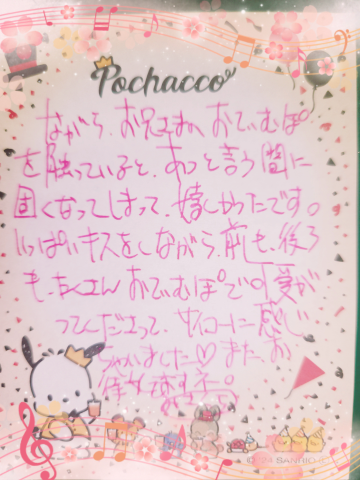 Pochacco
ながら、お兄さまの おてぃむぽ
を触っていると、あっと言う間に
固くなってしまって、嬉しかったです。
いっぱいキスをしながら、前も、後ろ
も、たくさん おてぃむぽで可愛が
って下さって、サイコーに感じ
ちゃいました♡ また、お
SANRIO